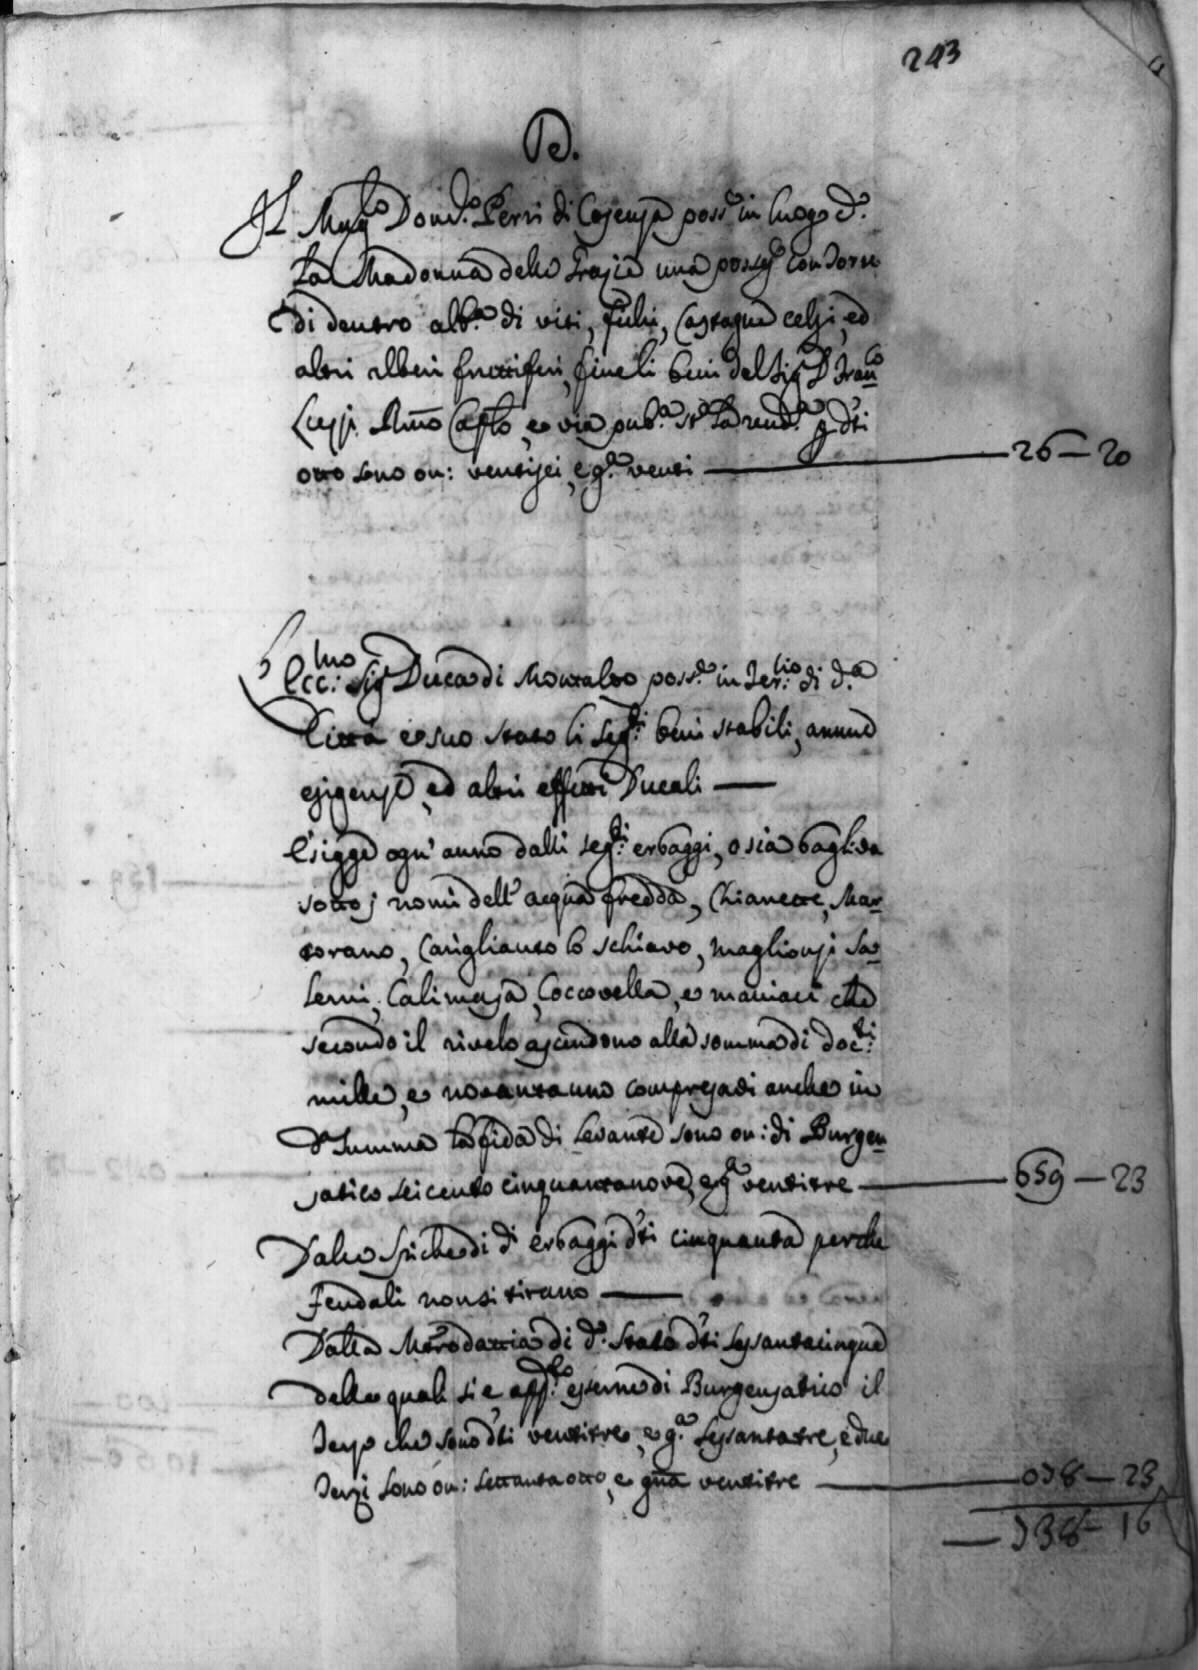 243
D.
Il Mag.co Dom.co Perri di Cosenza poss.e in luogo d.o
La Madonna delle Grazie una posses.e con torre
di dentro alb.a di viti, fichi, Castagne celzi, ed
altri alberi fruttiferi, fine li beni del Sig.r D. Fran.co
e via pub.a st.a la rend.a p d.ti
otto sono on: ventisei, e g.a venti 26 — 20
Ecc:mo Sig.r Duca di Montalto poss.e in Ter:rio di d.a
Città e suo stato li seg:ti beni stabili, annue
esigenze, ed altri effetti Ducali —
Esigge ogn' anno dalli seg:ti erbaggi, o sia
sotto i nomi dell' acqua fredda, Chianette, Mar-
torano, Cariglianto lo schiavo, maglionzi Sa-
lerni, Calimaja, Coccovella, e maniaci che
secondo il rivelo ascendono alla somma di doc:ti
mille, e novantauno compresadi anche in
d.a Summa la fida di Levante sono on: di Burgen-
satico seicento cinquantanove, e g.a ventitre — 659 — 23
Dalle spiche di d.i erbaggi d.ti cinquanta perche
feudali non si tirano —
Dalla Mastrodattia di d.o Stato d.ti sessantacinque
delle quali si e, esserne di Burgensatico il
terzo che sono d.ti ventitre, e g.a sessantatre, e due
terzi sono on: settanta otto, e gna ventitre — 078 — 23
— 738 — 16